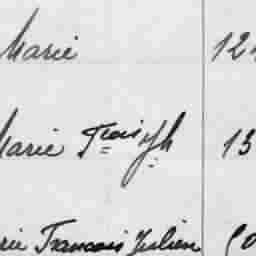 Marie 12
Marie Fcois Jh 13
rie Francois Julien